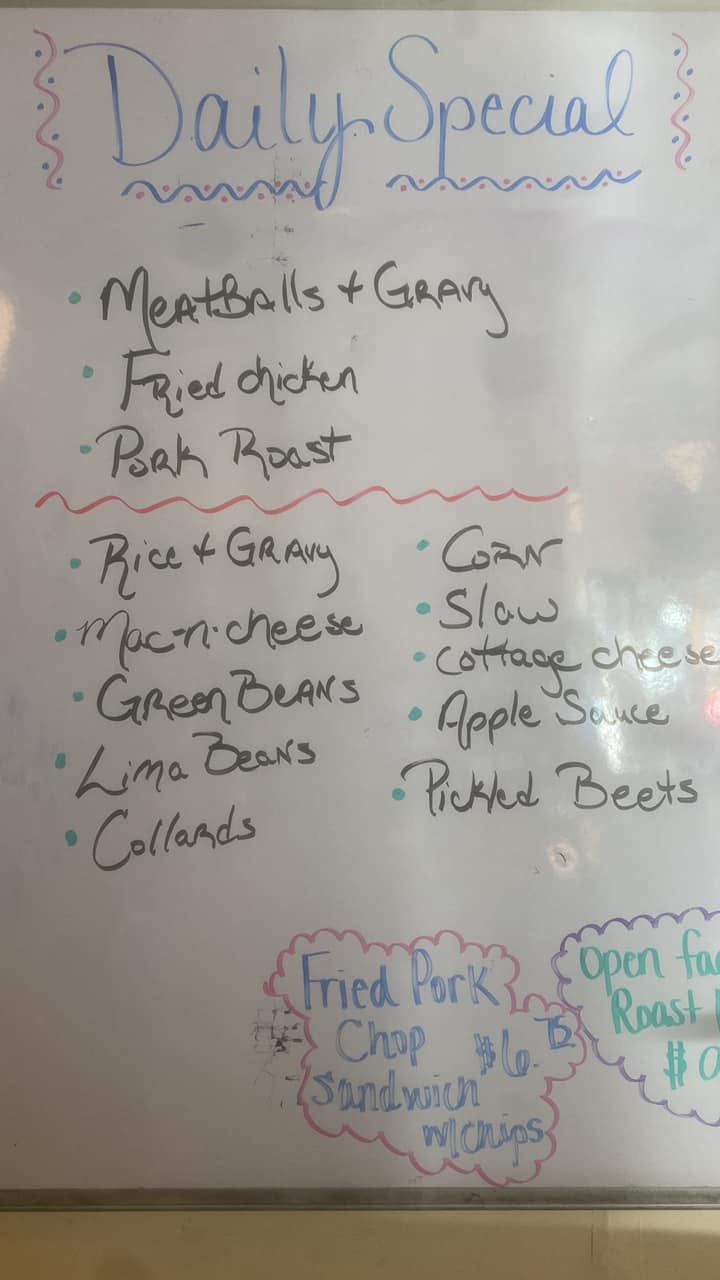 Daily Special
• Meatballs + Gravy
• Fried chicken
• Pork Roast
• Rice + Gravy
• Mac-n-cheese
• Green Beans
• Lima Beans
• Collards
• Corn
• Slaw
• Cottage cheese
• Apple Sauce
• Pickled Beets
Fried Pork
Chop $6.75
Sandwich
w/chips
Open fa
Roast
$